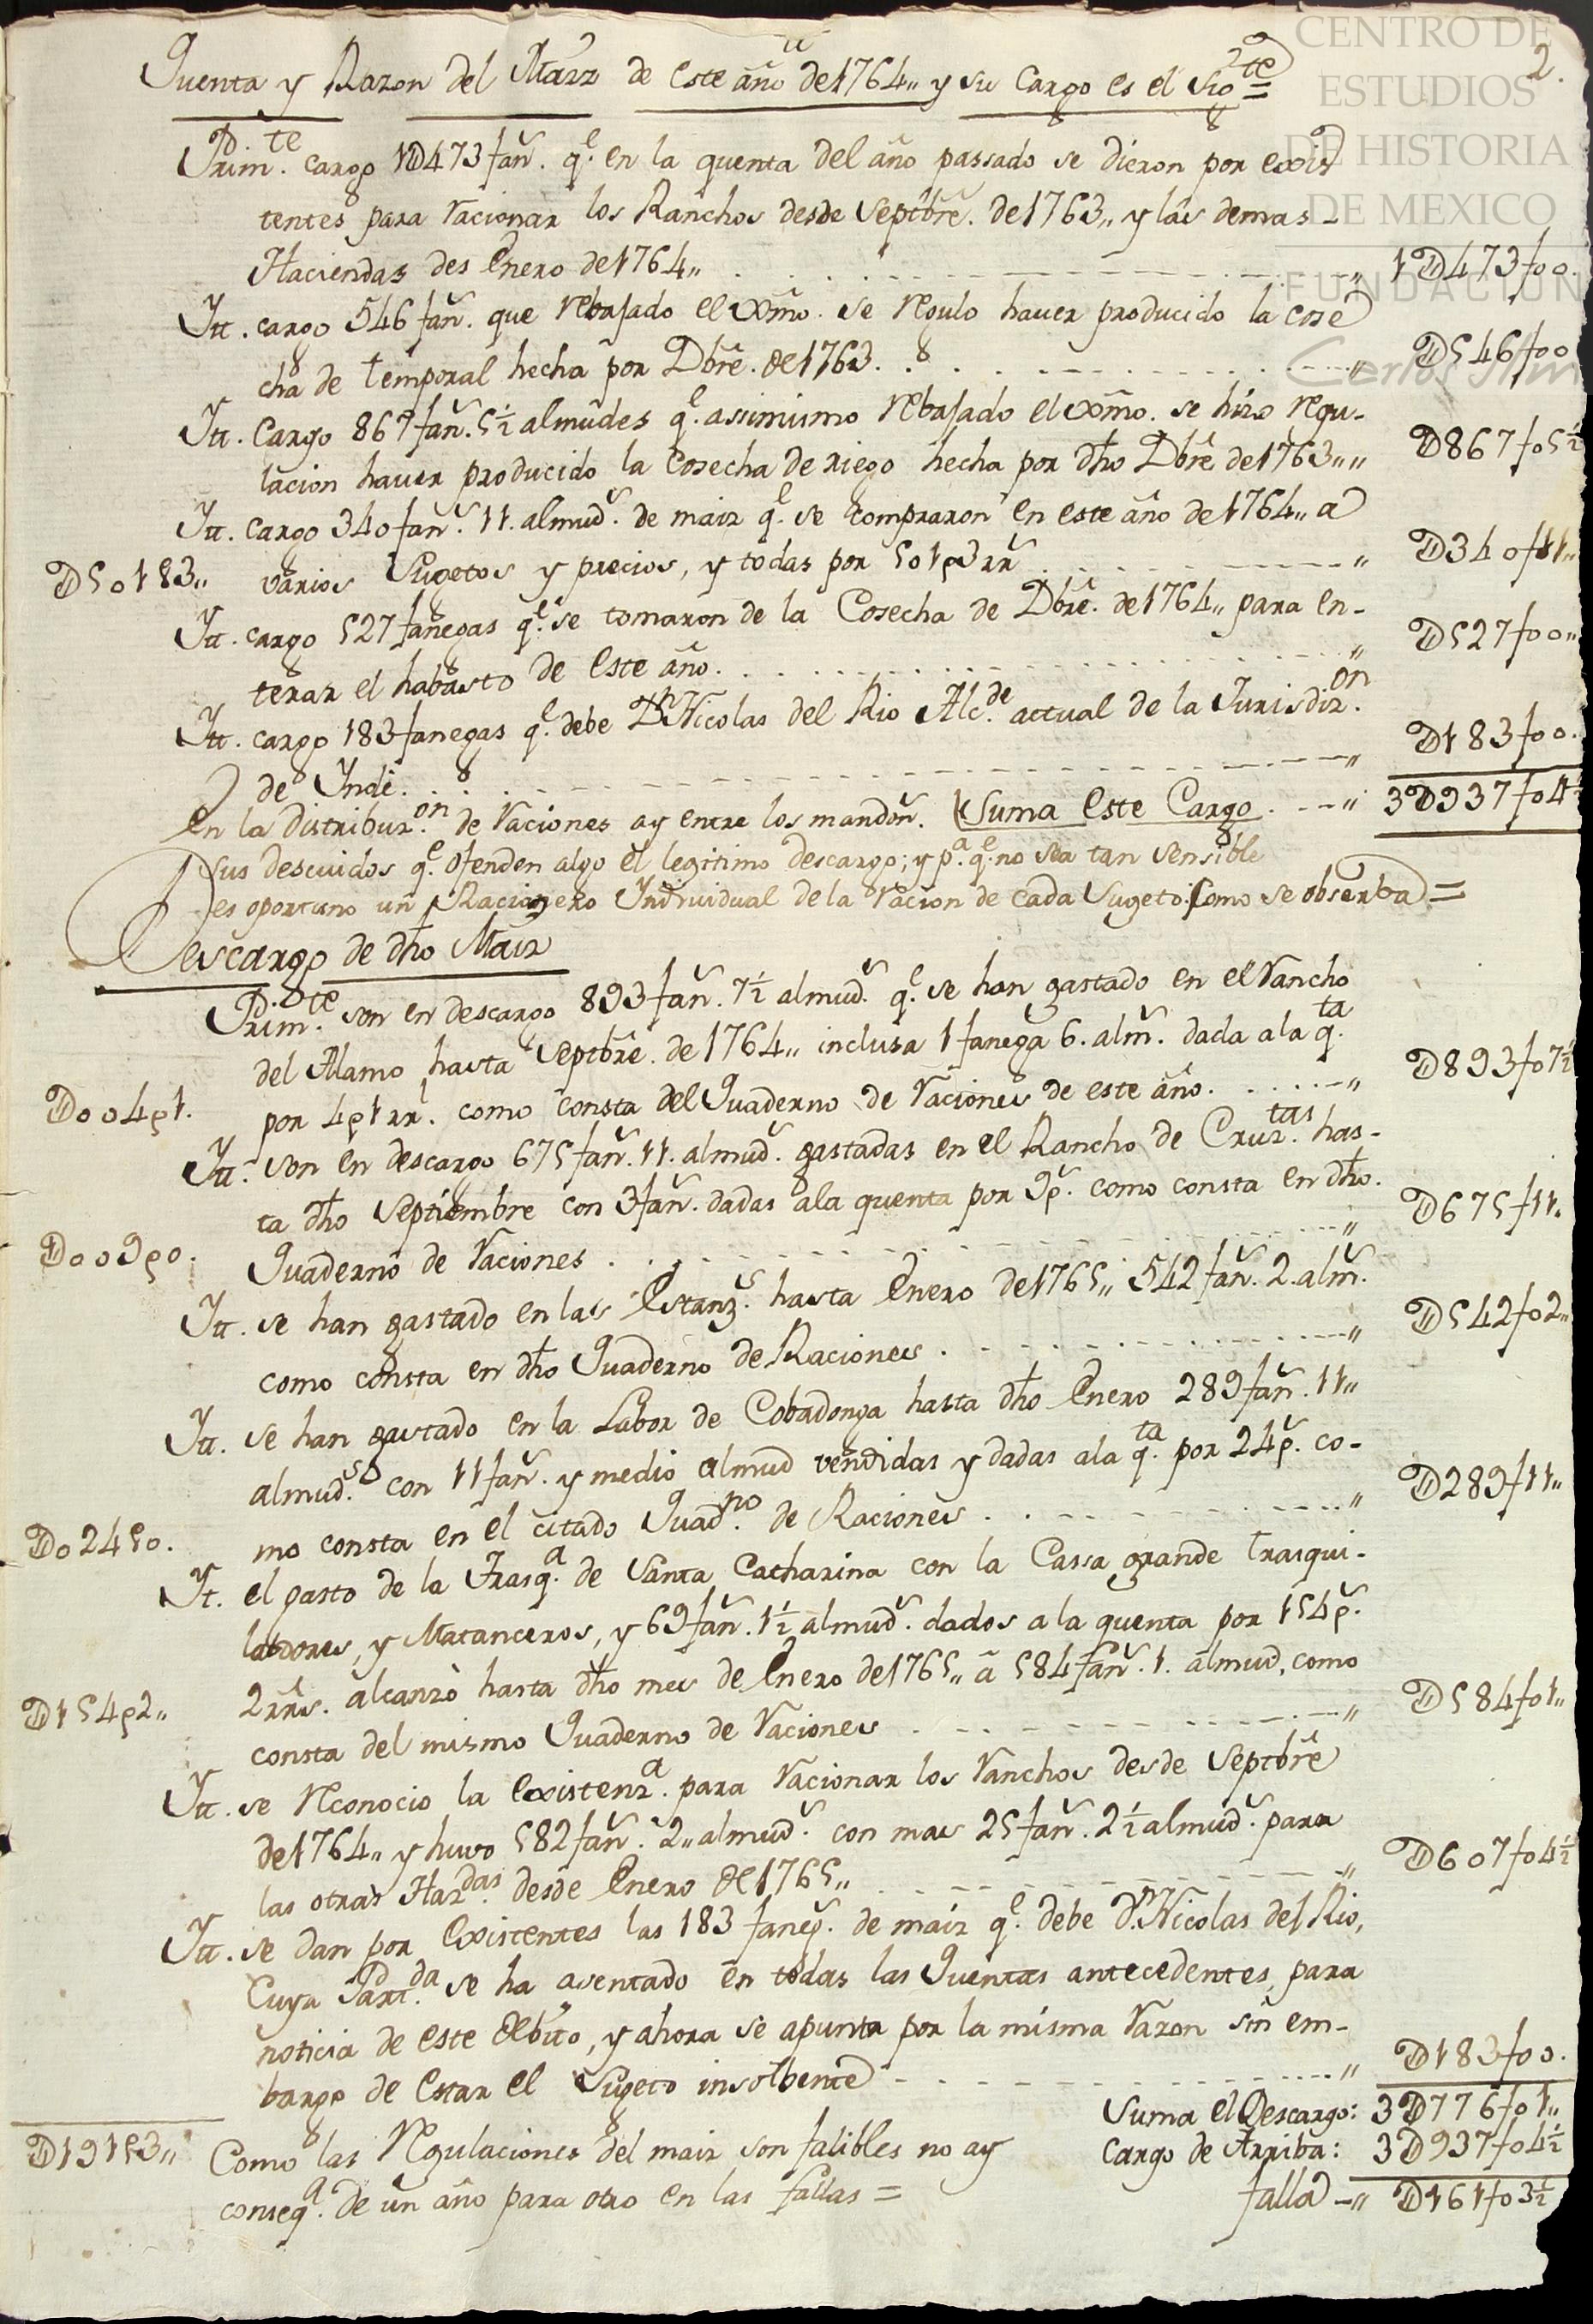 CENTRO DE
ESTUDIOS
DE HISTORIA
DE MEXICO
FUNDACION
Carlos Slim
2.
Quenta y Razon del Maiz de este año de 1764,, y su Cargo es el Sigte =
Primte. cargo 1D473 fañs. qe. en la quenta del año passado se dieron por exis
tentes para racionar los Ranchos desde Septbre. de 1763,, y las demas -
Haciendas des Enero de 1764,, 1D473f00.
Itt. cargo 546 fañs. que rebajado el Dxmo. se regulo haver producido la cose
cha de temporal hecha por Dbre. de 1763. D546f00
Itt. Cargo 867 fañs. 5½ almudes qe. assimismo rebajado el Dxmo. se hizo regu-
lacion haver producido la Cosecha de riego hecha por dho Dbre de 1763,,,, D867f05½
Itt. cargo 340 fañs. 11. almuds. de maiz qe. se compraron en este año de 1764,, a
D501p3,, varios Sugetos y precios, y todas por 501p3 rrs D340f11,,
Itt. cargo 527 fanegas qe. se tomaron de la Cosecha de Dbre. de 1764,, para en-
terar el habasto de este año. D527f00,,
Itt. cargo 183 fanegas qe. debe Dn Nicolas del Rio Alcde. actual de la Jurisdizon.
de Yndé. D183f00.
En la distribuzon. de raciones ay entre los mandons. Suma Este Cargo. 3D937f04½
sus descuidos qe. ofenden algo el legitimo descargo; y pa. qe. no sea tan sensible
es oportuno un Racionero Yndividual de la racion de cada Sugeto. Como se observa =
Descargo de dho Maiz
Primte. son en descargo 893 fañs. 7½ almuds. qe. se han gastado en el rancho
del Alamo hasta Septbre. de 1764,, inclusa 1 fanega 6. alms. dada a la qta.
D004p1. por 4p1 rrl. como consta del Quaderno de raciones de este año. D893f07½
Itt. son en descargo 675 fañs. 11. almuds. gastadas en el Rancho de Cruztas. has-
ta dho Septiembre con 3 fañs. dadas a la quenta por 9ps. como consta en dho.
D009p0. Quaderno de raciones D675f11.
Itt. se han gastado en las Estanzs. hasta Enero de 1765,, 542 fañs. 2. alms.
como consta en dho Quaderno de Raciones. D542f02,,
Itt. se han gastado en la Labor de Cobadonga hasta dho Enero 289 fañs. 11,,
almuds. con 11 fañs. y medio almud vendidas y dadas a la qta. por 24ps. co-
D024p0. mo consta en el citado Quadno. de Raciones D289f11,,
It. el gasto de la Trasqa. de Santa Catharina con la Cassa grande trasqui-
ladores, y Matanceros, y 69 fañs. 1½ almuds. dados a la quenta por 154ps.
D154p2,, 2 rrs. alcanzò hasta dho mes de Enero de 1765,, â 584 fañs. 1. almud, como
consta del mismo Quaderno de raciones D584f01,,
Itt. se reconocio la existenza. para racionar los ranchos desde Septbre
de 1764,, y huvo 582 fañs. 2,, almuds. con mas 25 fañs. 2½ almuds. para
las otras Hazdas. desde Enero de 1765,, D607f04½
Itt. se dan por Existentes las 183 fanegs. de maiz qe. debe dn. Nicolas del Rio,
Cuya Partda. se ha asentado en todas las Quentas antecedentes, para
noticia de este debito, y ahora se apunta por la misma razon sin em-
bargo de estar el Sugeto insolbente D183f00.
Suma el Descargo: 3D776f01,,
D191p3,, Como las regulaciones del maiz son falibles no ay Cargo de Arriba: 3D937f04½
conseqa. de un año para otro en las fallas = falla D161f03½